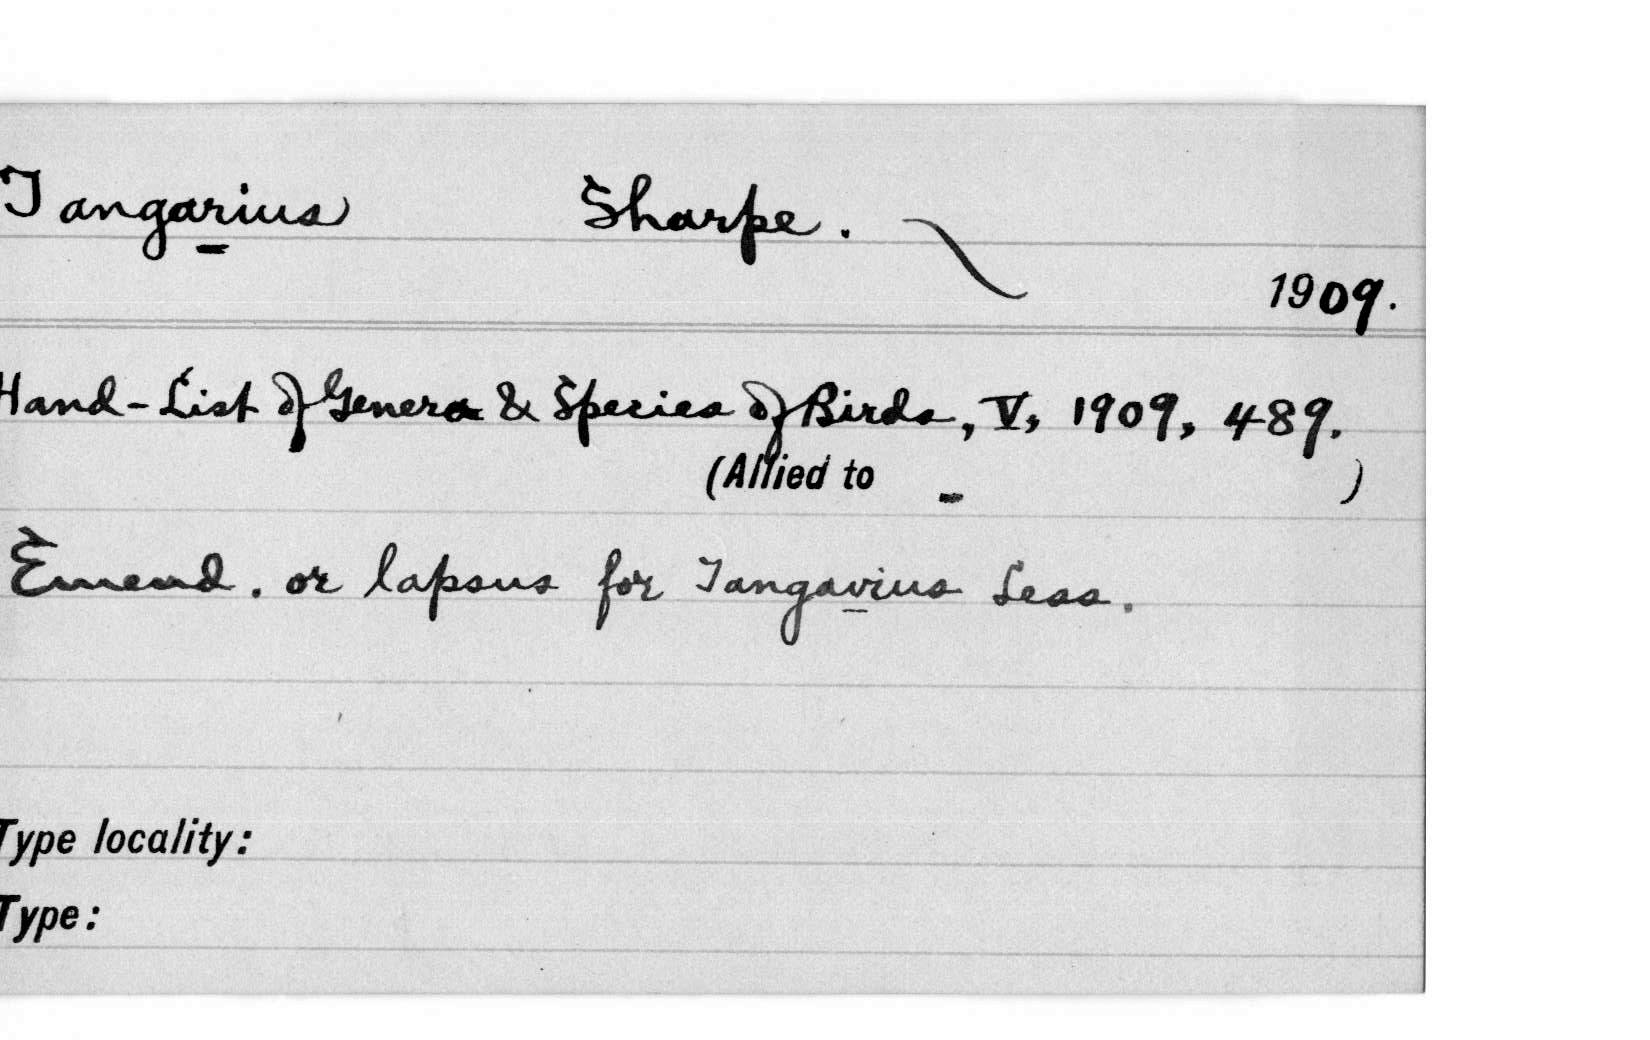 Tangarius Sharpe.
1909.
Hand-List of Genera & Species of Birds, V, 1909, 489.
(Allied to - )
Emend. or lapsus for Tangavius Less.
Type locality:
Type: